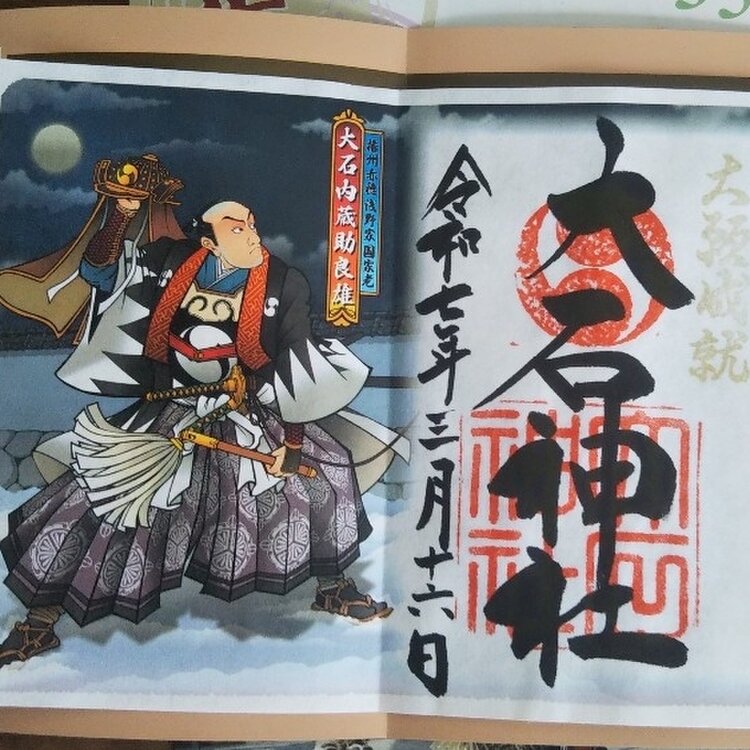 大願成就
大石神社
令和七年三月十六日
播州赤穂浅野家国家老
大石内蔵助良雄